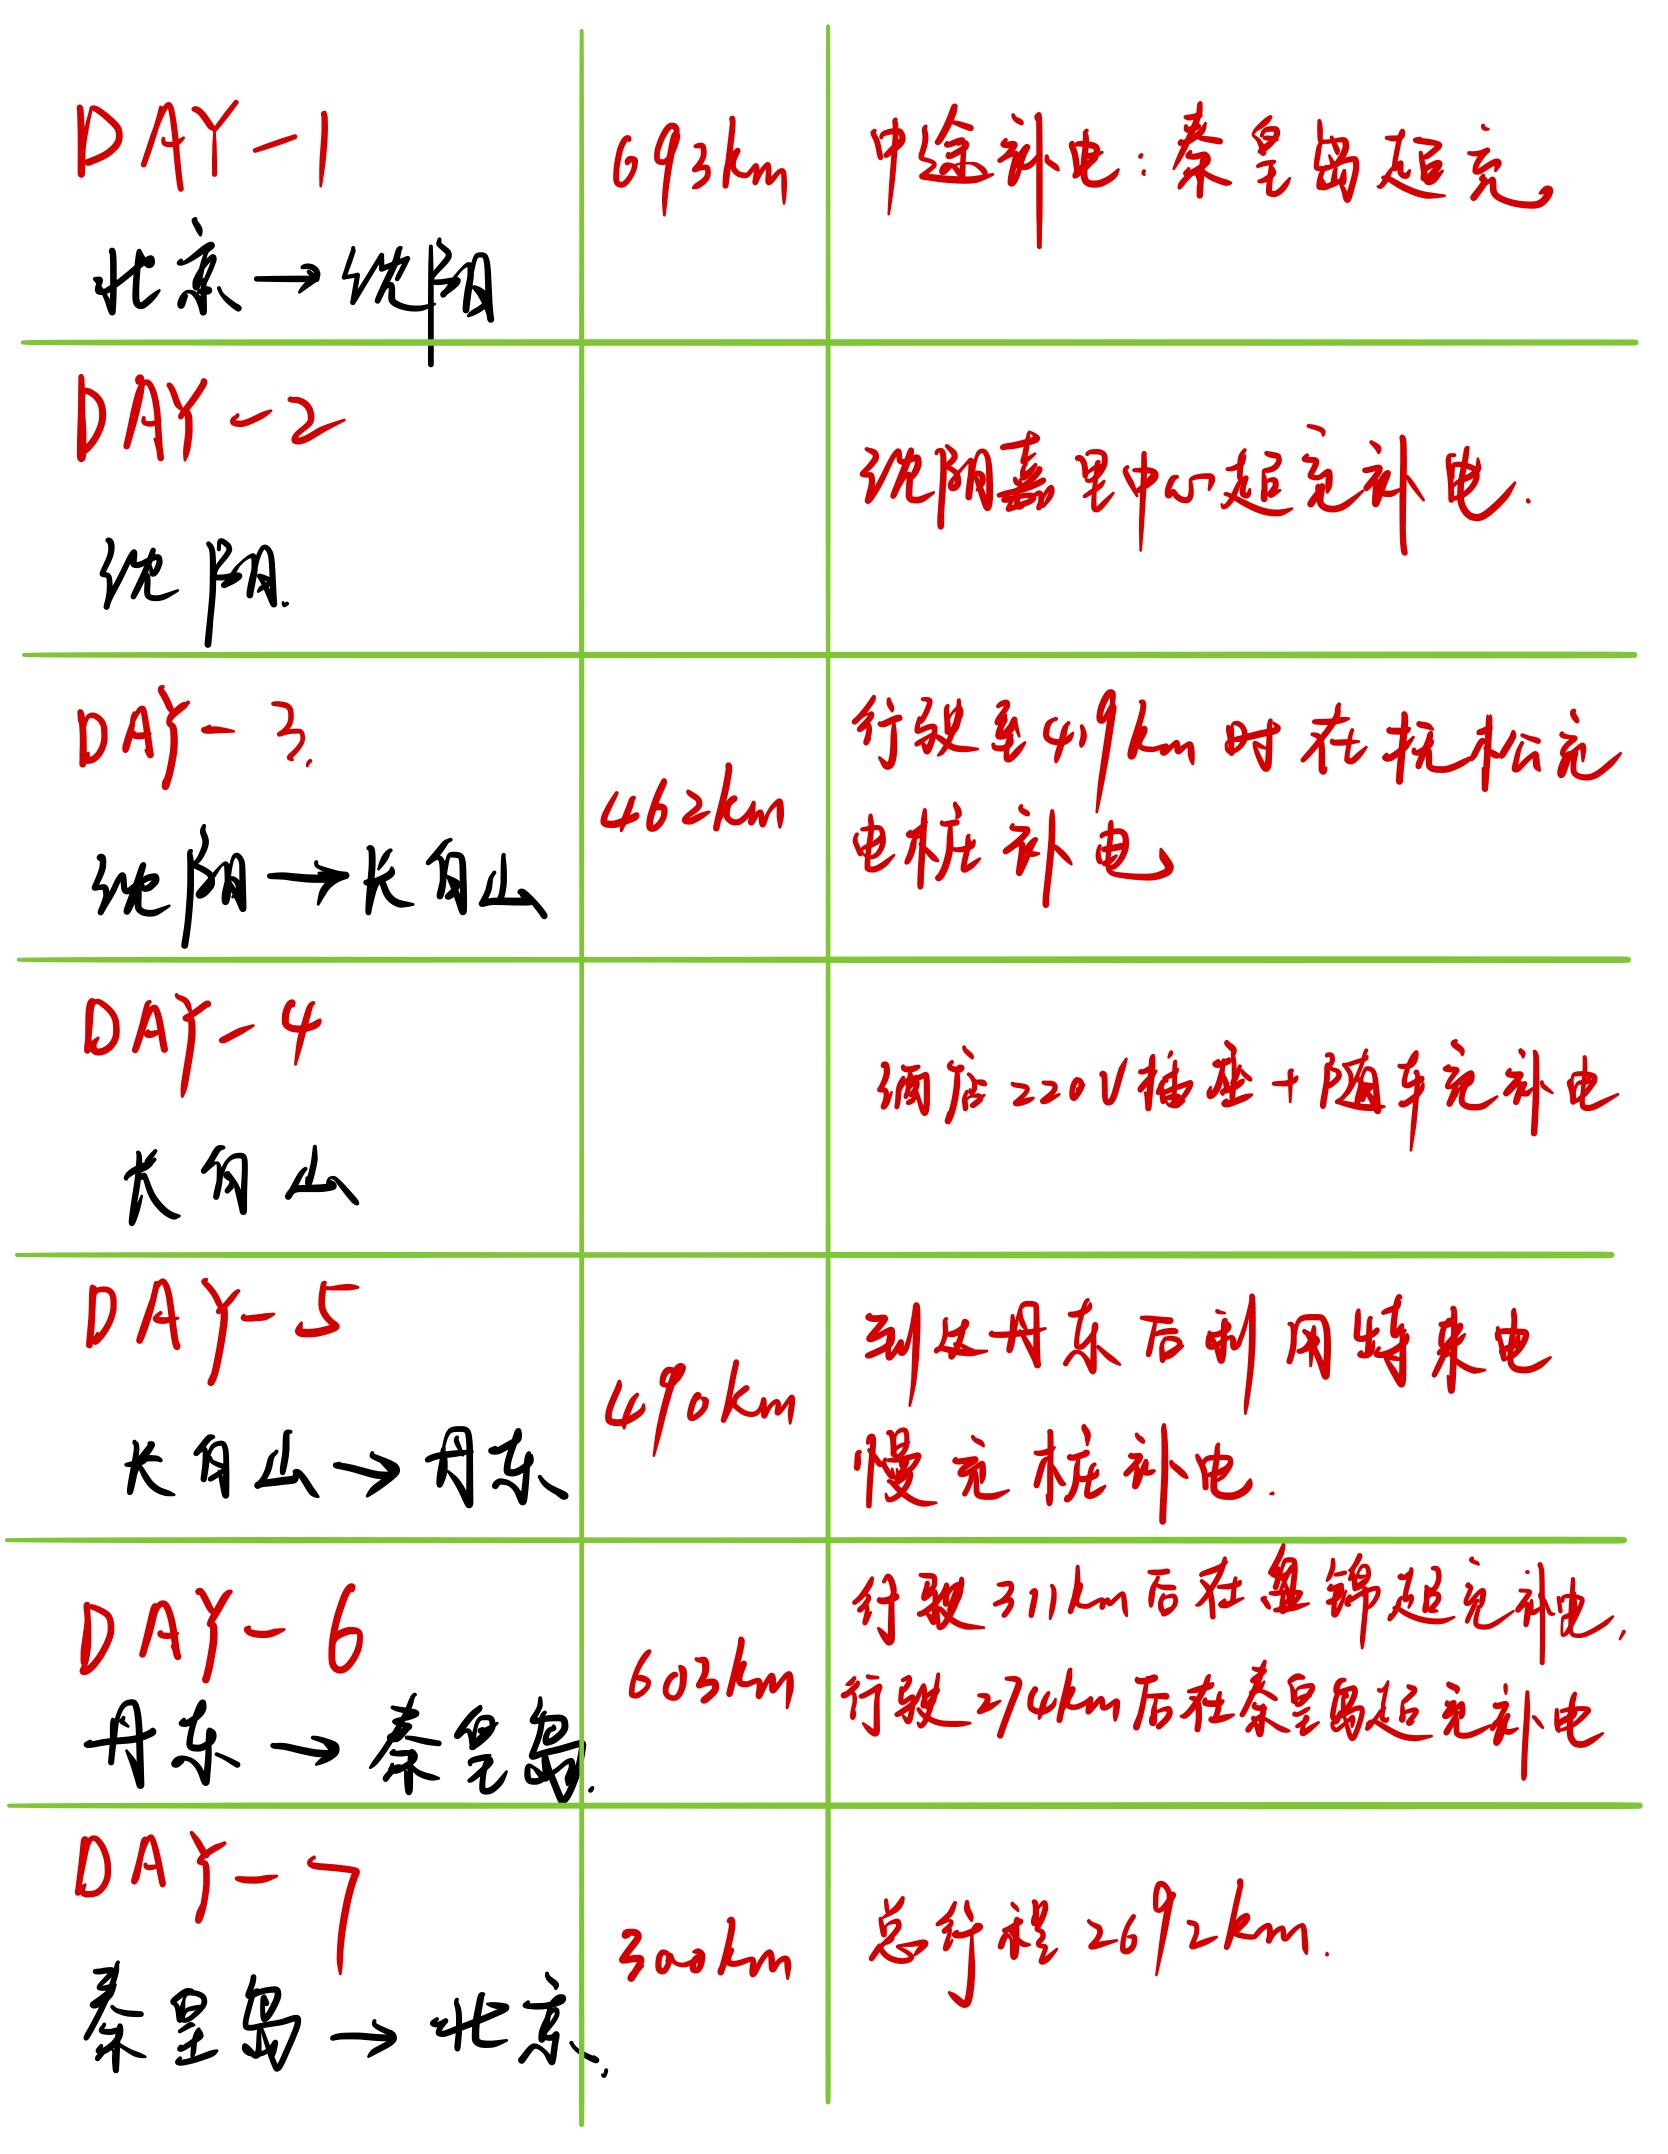 DAY-1
北京→沈阳
693km
中途补电：秦皇岛超充。
DAY-2
沈阳.
沈阳嘉里中心超充补电.
DAY-3.
沈阳→长白山
462km
行驶至419km时在抚松充
电桩补电
DAY-4
长白山
酒店220V插座+随车充补电
DAY-5
长白山→丹东
490km
到达丹东后利用特来电
慢充桩补电.
DAY-6
丹东→秦皇岛.
603km
行驶311km后在盘锦超充补电,
行驶274km后在秦皇岛超充补电
DAY-7
秦皇岛→北京.
300km
总行程2692km.